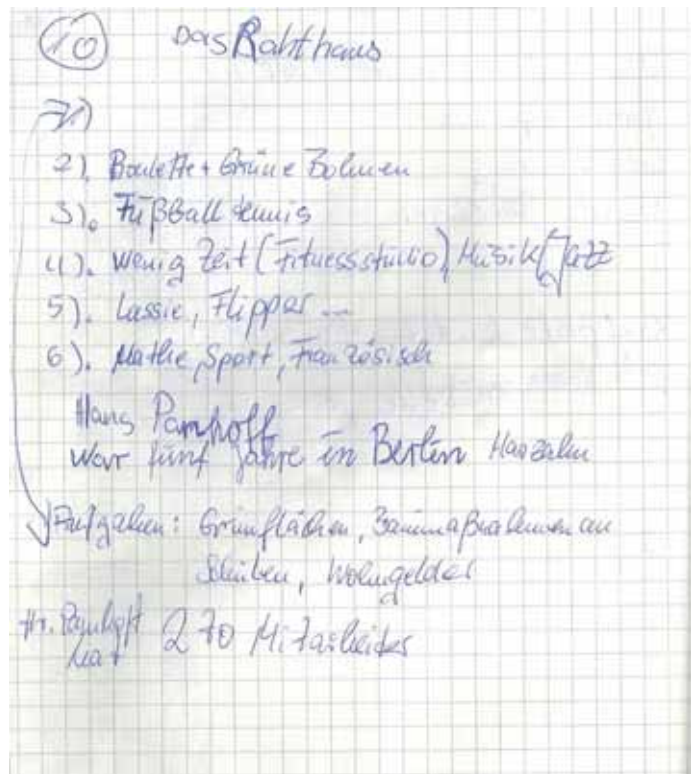 10 Das Rahthaus
7)
2). Boulette + Grüne Bohnen
3). Fußball tennis
4). Wenig Zeit (Fitnessstudio), Musik (Jazz
5). Lassie, Flipper ...
6). Mathe, Sport, Französisch
Hans Pamhoff
War fünf Jahre in Berlin
Aufgaben: Grünflächen, Baumaßnahmen an
Schulen, Wohngelder
Hr. Pamhoff
hat 270 Mitarbeiter